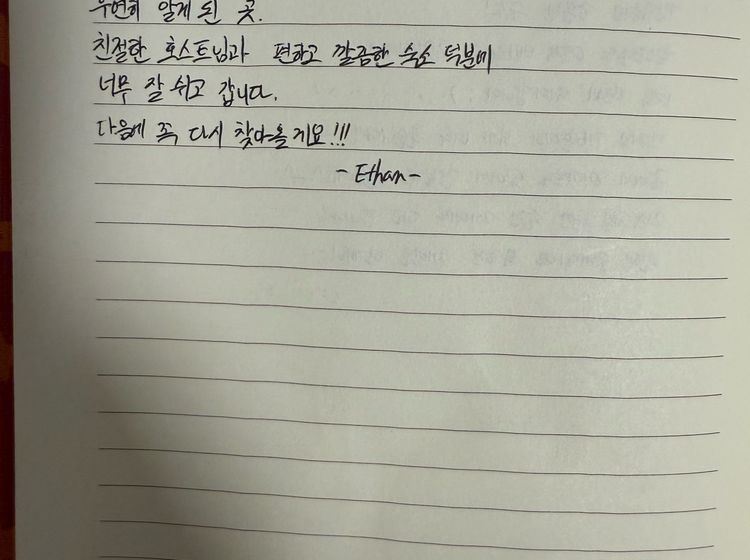 우연히 알게 된 곳.
친절한 호스트님과 편하고 깔끔한 숙소 덕분에
너무 잘 쉬고 갑니다.
다음에 꼭 다시 찾아올게요!!!
- Ethan -